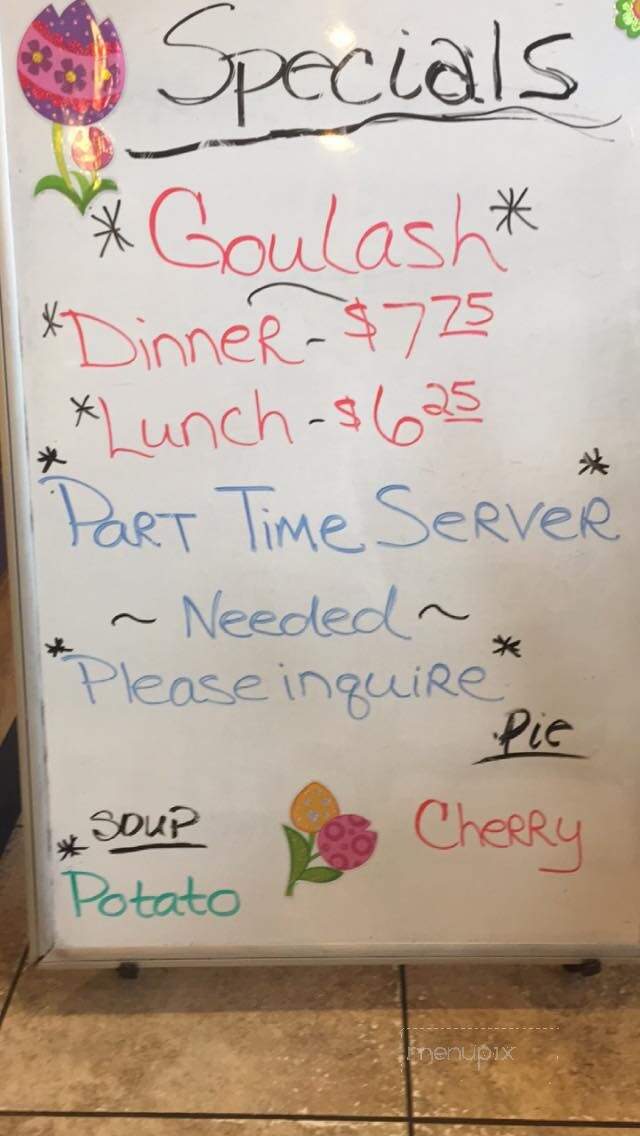 Specials
* Goulash *
* Dinner - $7 75
* Lunch - $6 25
* Part Time Server *
~ Needed ~
* Please inquire *
Pie
Cherry
* Soup
Potato
menupix